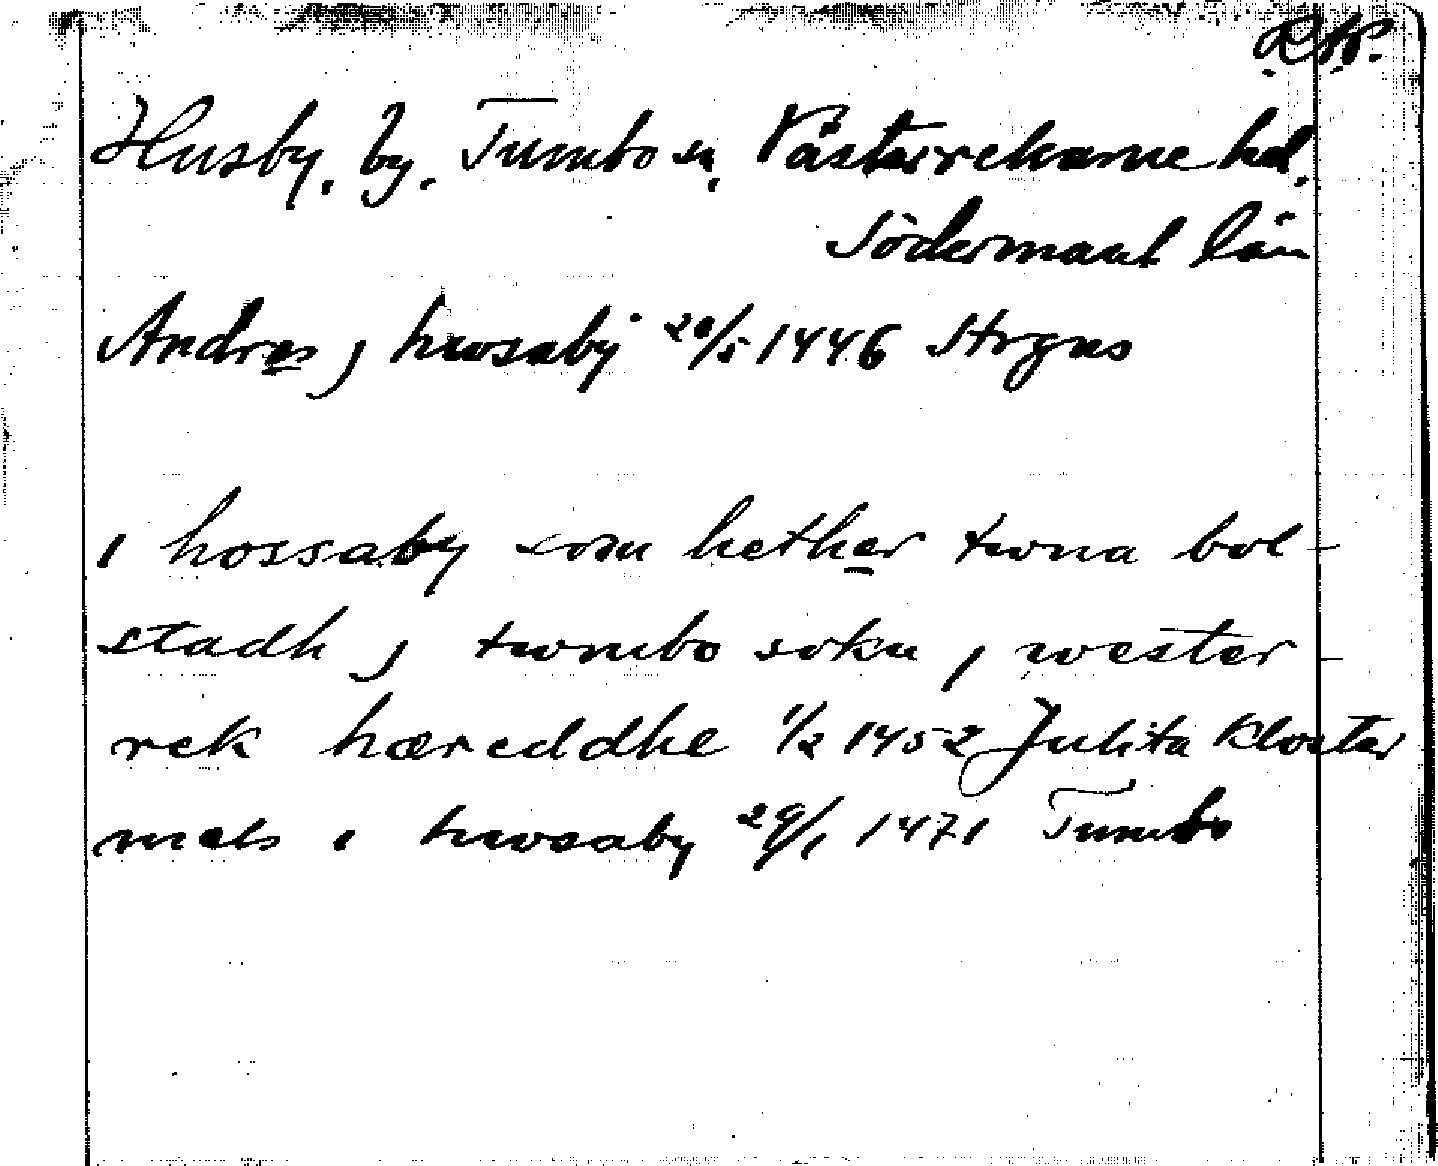 RAP.
Husby, by. Tumbo sn, Västerrekarne hd.
Södermanl län
Andres j hwsaby 20/5 1446 Strgns
i hossaby som hether twna bol-
stadh j twmbo sokn j wester-
rek hæreddhe 1/2 1452 Julita kloster
mels i hwsaby 29/1 1471 Tumbo